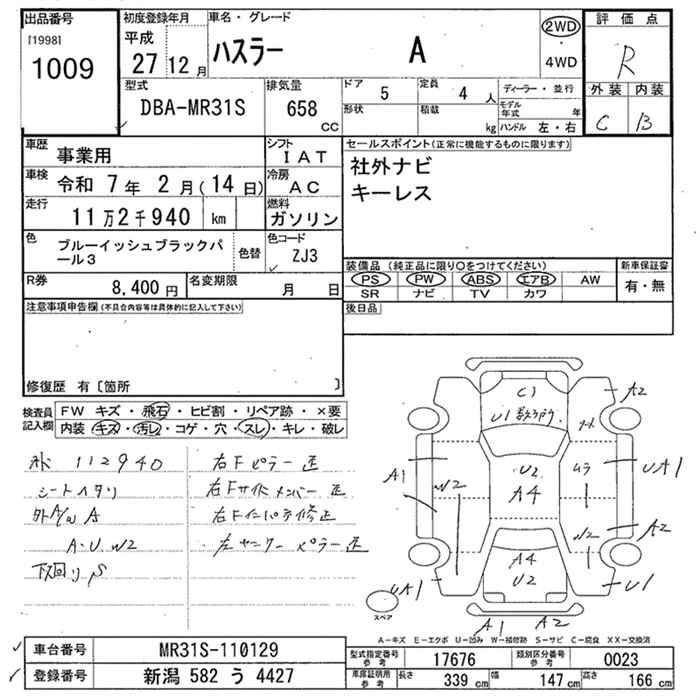 出品番号
[1998]
1009
初度登録年月
平成
27 12 月
車名・グレード
ハスラー A
2WD
4WD
評価点
R
外装 内装
C B
型式
DBA-MR31S
排気量
658
CC
ドア 5
定員 4 人
形状
積載 kg
ディーラー・並行
モデル年式 年
ハンドル 左・右
車歴
事業用
シフト
IAT
車検 令和 7 年 2 月(14日)
冷房
AC
走行
11万2千940 km
燃料
ガソリン
色
ブルーイッシュブラックパール3
色替
色コード
ZJ3
R券 8,400 円
名変期限 月 日
セールスポイント(正常に機能するものに限ります)
社外ナビ
キーレス
装備品(純正品に限り○をつけてください)
PS PW ABS エアB AW
SR ナビ TV カワ
新車保証書
有・無
後日品
注意事項申告欄(不具合内容等は具体的に記入して下さい)
修復歴 有〔箇所 〕
検査員
記入欄
FW キズ・飛石・ヒビ割・リペア跡・×要
内装 キズ・汚レ・コゲ・穴・スレ・キレ・破レ
112940
シートヘタリ
外A/W A
A・U・W2
下回りS
右Fピラー歪
右Fサイドメンバー歪
右Fインパネ修正
左センターピラー歪
C1
U1
A2
U2
A4
ムラ
A1
W2
UA1
A2
W2
A4
U2
UA1
U1
A1
A2
スペア
A-キズ E-エクボ U-凹み W-補修跡 S-サビ C-腐食 XX-交換済
車台番号 MR31S-110129
登録番号 新潟 582 う 4427
型式指定番号
参考
17676
類別区分番号
参考
0023
車庫証明用
参考
長さ 339 cm
幅 147 cm
高さ 166 cm